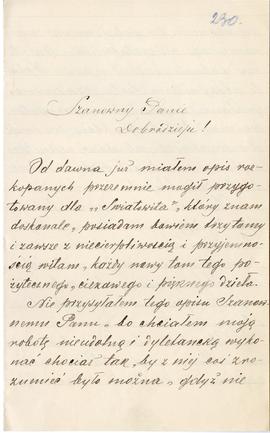 230.
Szanowny Panie
Dobrodzieju!
Od dawna już miałem opis roz-
kopanych przezemnie mogił przygo-
towany dla „Światowita", który znam
doskonale, posiadam bowiem trzy tomy
i zawsze z niecierpliwością i przyjemno-
ścią witam, każdy nowy tom tego po-
żytecznego, ciekawego i pięknego dzieła.
Nie przysyłałem tego opisu Szanow-
nemu Panu, bo chciałem moją
robotę nieudolną i dyletancką wyko-
nać chociaż tak, by z niej coś zro-
zumieć było można, gdyż nie